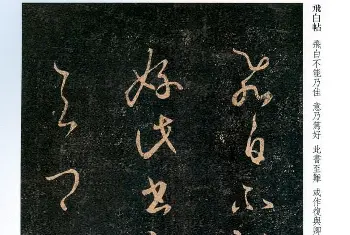 飛白帖 飛白不能乃佳 意乃篤好 此書至難 或作復與卿
飛白不
好此書